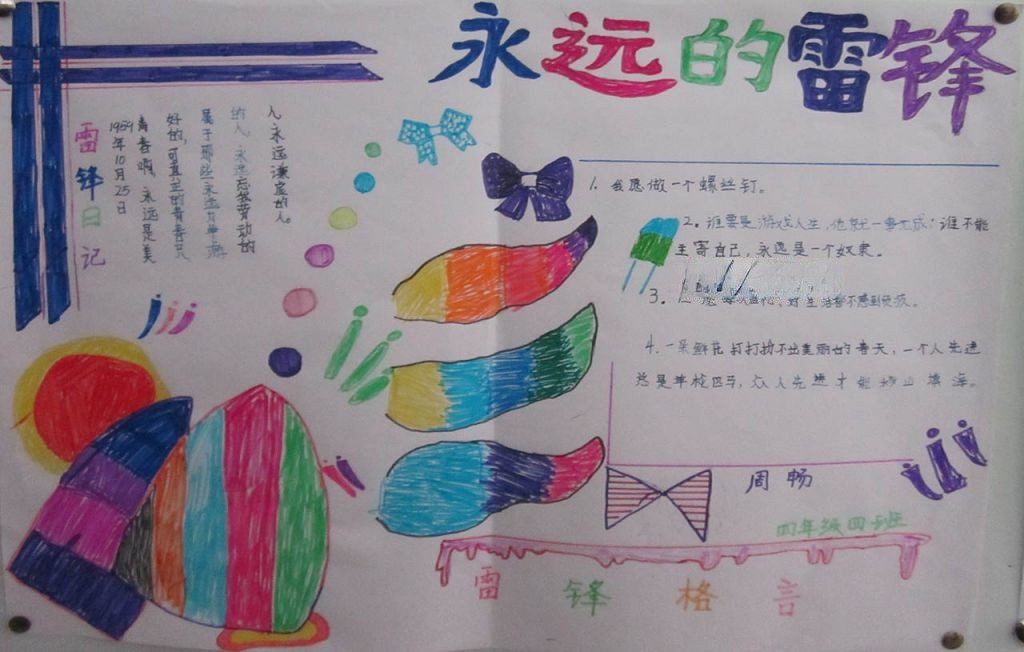 永远的雷锋
雷锋日记
1959年10月25日
青春啊,永远是美
好的,可真正的青春只
属于那些永远力争上游
的人,永远忘我劳动的
人,永远谦虚的人。
1. 我愿做一个螺丝钉。
2。谁要是游戏人生,他就一事无成;谁不能
主宰自己,永远是一个奴隶。
3。对生活都不感到负疚。
4. 一朵鲜花打扮不出美丽的春天,一个人先进
总是单枪匹马,众人先进才能移山填海。
周畅
四年级四班
雷锋格言